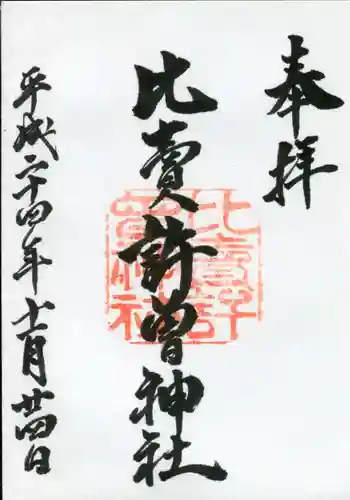 奉拝
比賣許曽神社
比賣許曽神社
平成二十四年十一月廿四日